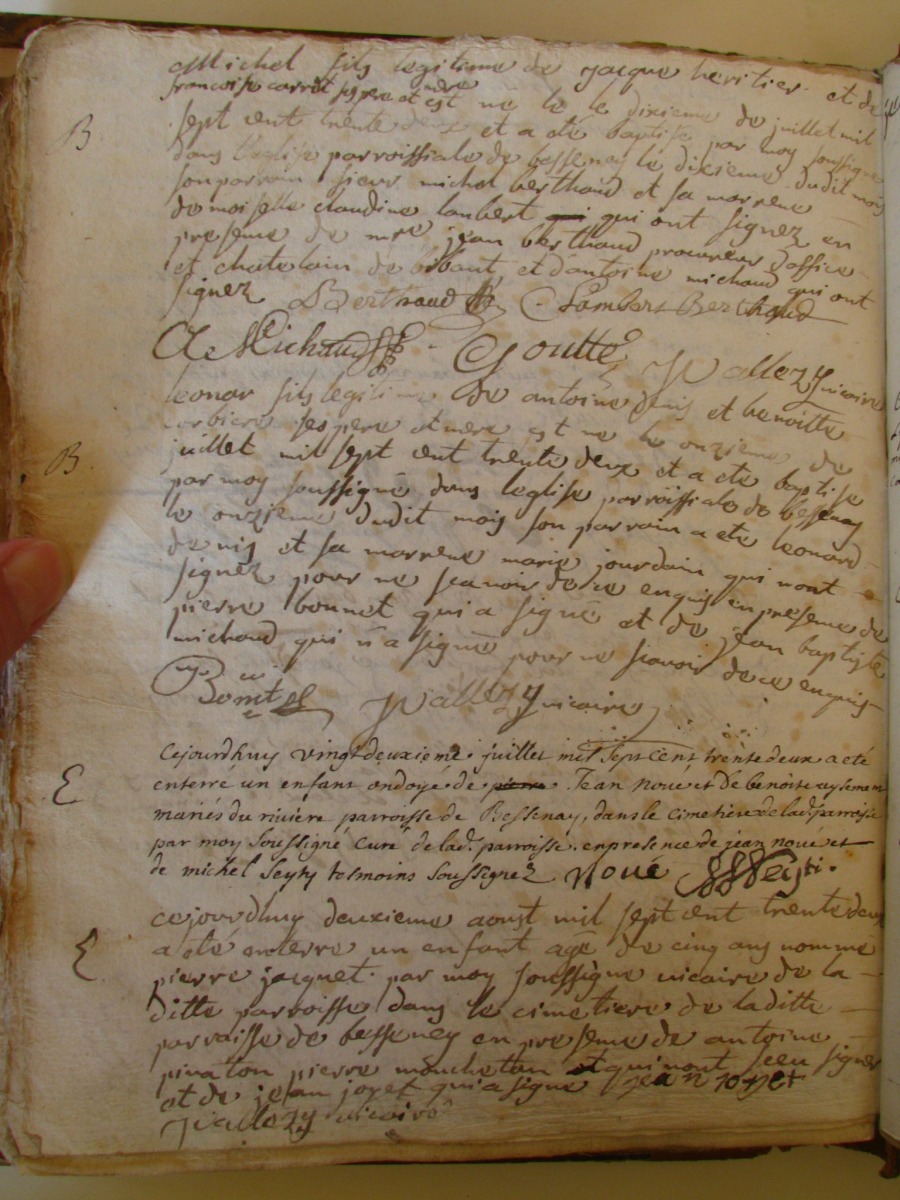 Michel fils legitime de jacque heritier et de
francoise carrit ses pere et mere est né le dixieme de juillet mil
B
sept cent trente deux et a eté baptisé par moy soussigné
dans leglise parroissiale de bessenay le dixieme dudit mois
son parrain sieur michel berthaud et sa marrene
demoiselle claudine lambert qui ont signez en
presense de mre jean berthaud procureur d'office
et chatelain de bibaut et d'antoine michaud qui ont
signez Berthaud Lambert Berthaud
A Michaud Goutte Vallezy vicaire
leonar fils legitime de antoine denis et benoitte
corbiere ses pere et mere est né le onzieme de
B
juillet mil sept cent trente deux et a eté baptisé
par moy soussigné dans leglise parroissiale de bessenay
le onzieme dudit mois son parrain a eté leonard
denis et sa marrene marie jourdain qui nont
signez pour ne scavoir de ce enquis en presense de
pierre bonnet qui a signé et de jean baptiste
michaud qui n'a signé pour ne scavoir de ce enquis
Vallezy vicaire
E
Cejourdhuy vingtdeuxieme juillet mil Sept cent trente deux a eté
enterré un enfant ondoyé de pierre Jean Noué et de benoite
mariés du riviere parroisse de Bessenay, dans le cimetiere de lad. parroisse
par moy Soussigné curé de lad. parroisse. en presence de jean noué et
de michel Seyty tesmoins Soussignez Noué
E
cejourdhuy deuxieme aoust mil sept cent trente deux
a eté enterré un enfant agé de cinq ans nommé
pierre jacquet par moy soussigné vicaire de la
ditte parroisse dans le cimetiere de laditte
parroisse de bessenay en presense de antoine
pinaton pierre moucheton et qui nont sceu signer
et de jean joyet qui a signé jean joyet
Vallezy vicaire